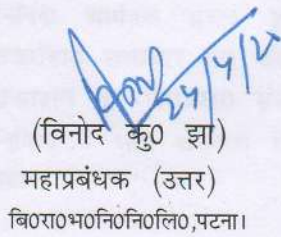 24/4/20
(विनोद कु0 झा)
महाप्रबंधक (उत्तर)
बि0रा0भ0नि0नि0लि0,पटना।